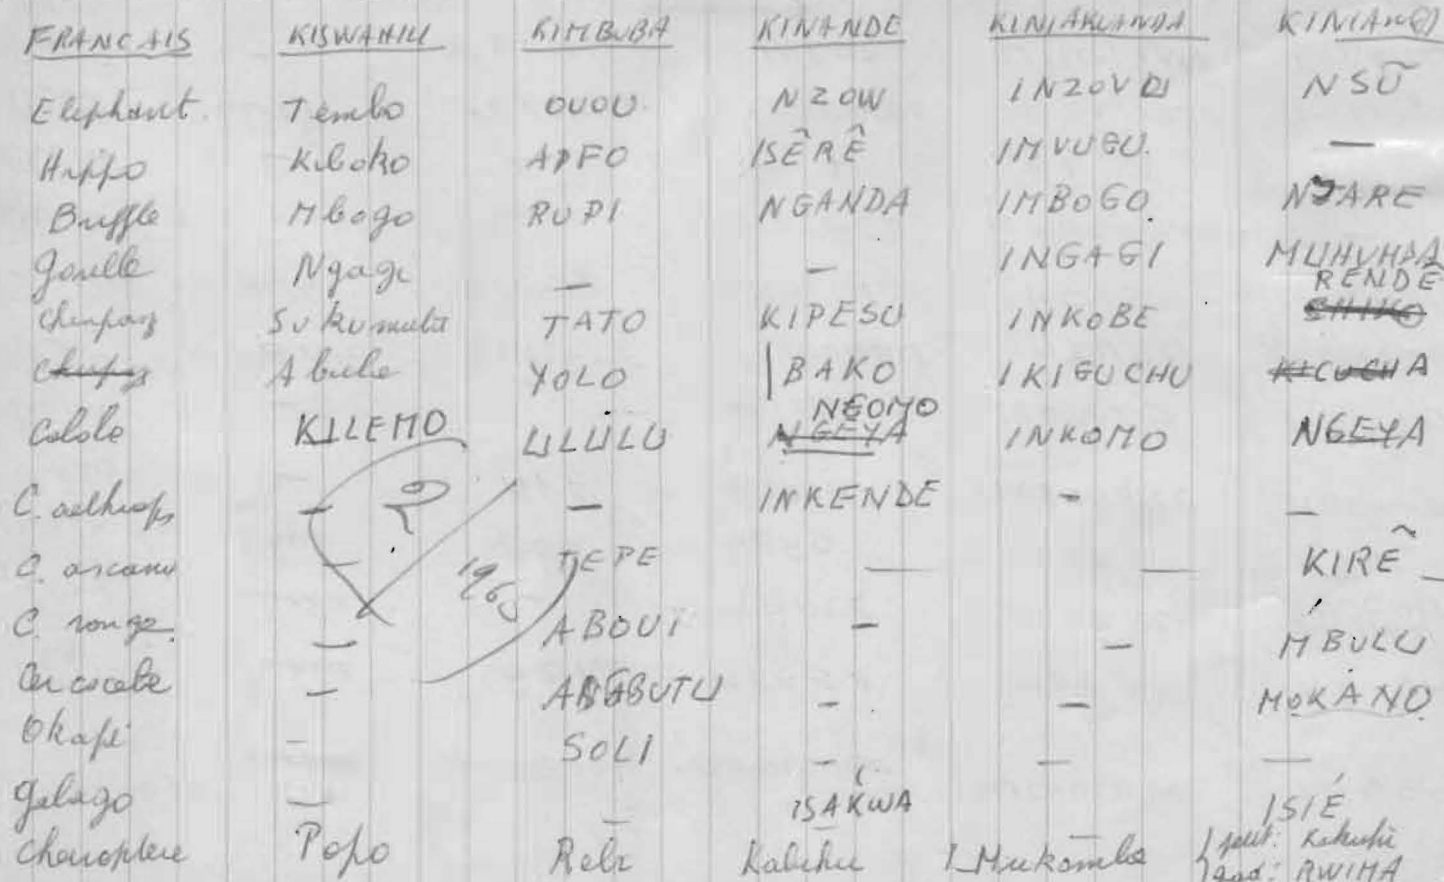 FRANCAIS KISWAHILI KIMBUBA KINANDE KINIARUANDA
Elephant. Tembo OUOU. NZOW INZOVU NSŨ
Hippo Kiboko APFO ISÊRÊ IMVUGU. —
Buffle Mbogo RUPI NGANDA IMBOGO. NJARE
Gorille Ngagi — — INGAGI MUHUHDA
RENDÊ
Chimpanz Sokumutu TATO KIPÉSU INKOBE CHIKO
Abube YOLO BAKO IKIGUCHU KICUCHA
NGOMO
Colobe KILEMO ULULU NGEYA INKOMO NGEYA
C. aethiops — ? — INKENDE - —
C. ascani — TEPE — — KIRẼ —
1965
C. rouge. — ABOUI - — MBULU
Cercocebe — - — MOKANO
Okapi — SOLI - — —
Galago — — ISAKWA — ISIÉ
Cheiroptere Popo Kabuhu Mukomba petit:
RWIMA